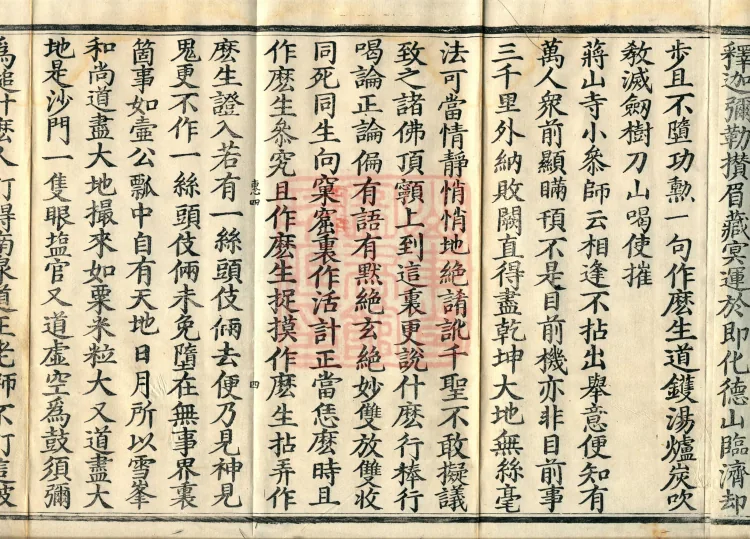 釋迦彌勒攢眉藏冥運於即化德山臨濟却
步且不墮功勲一句作麽生道鑊湯爐炭吹
敎滅劒樹刀山喝使摧
蔣山寺小參師云相逢不拈出舉意便知有
萬人衆前顯瞞頇不是目前機亦非目前事
三千里外納敗闕直得盡乾坤大地無絲毫
法可當情靜悄悄地絶誵訛千聖不敢擬議
致之諸佛頂𩕳上到這裏更說什麽行棒行
喝論正論偏有語有默絶玄絶妙雙放雙收
同死同生向窠窟裏作活計正當恁麽時且
作麽生叅究且作麽生捉摸作麽生拈弄作
惠四
四
麽生證入若有一絲頭伎倆去便乃見神見
鬼更不作一絲頭伎倆未免墮在無事界裏
箇事如壺公瓢中自有天地日月所以雪峯
和尚道盡大地撮來如粟米粒大又道盡大
地是沙門一隻眼塩官又道虛空爲鼓須彌
爲槌什麽人打得南泉道王老師不打這破